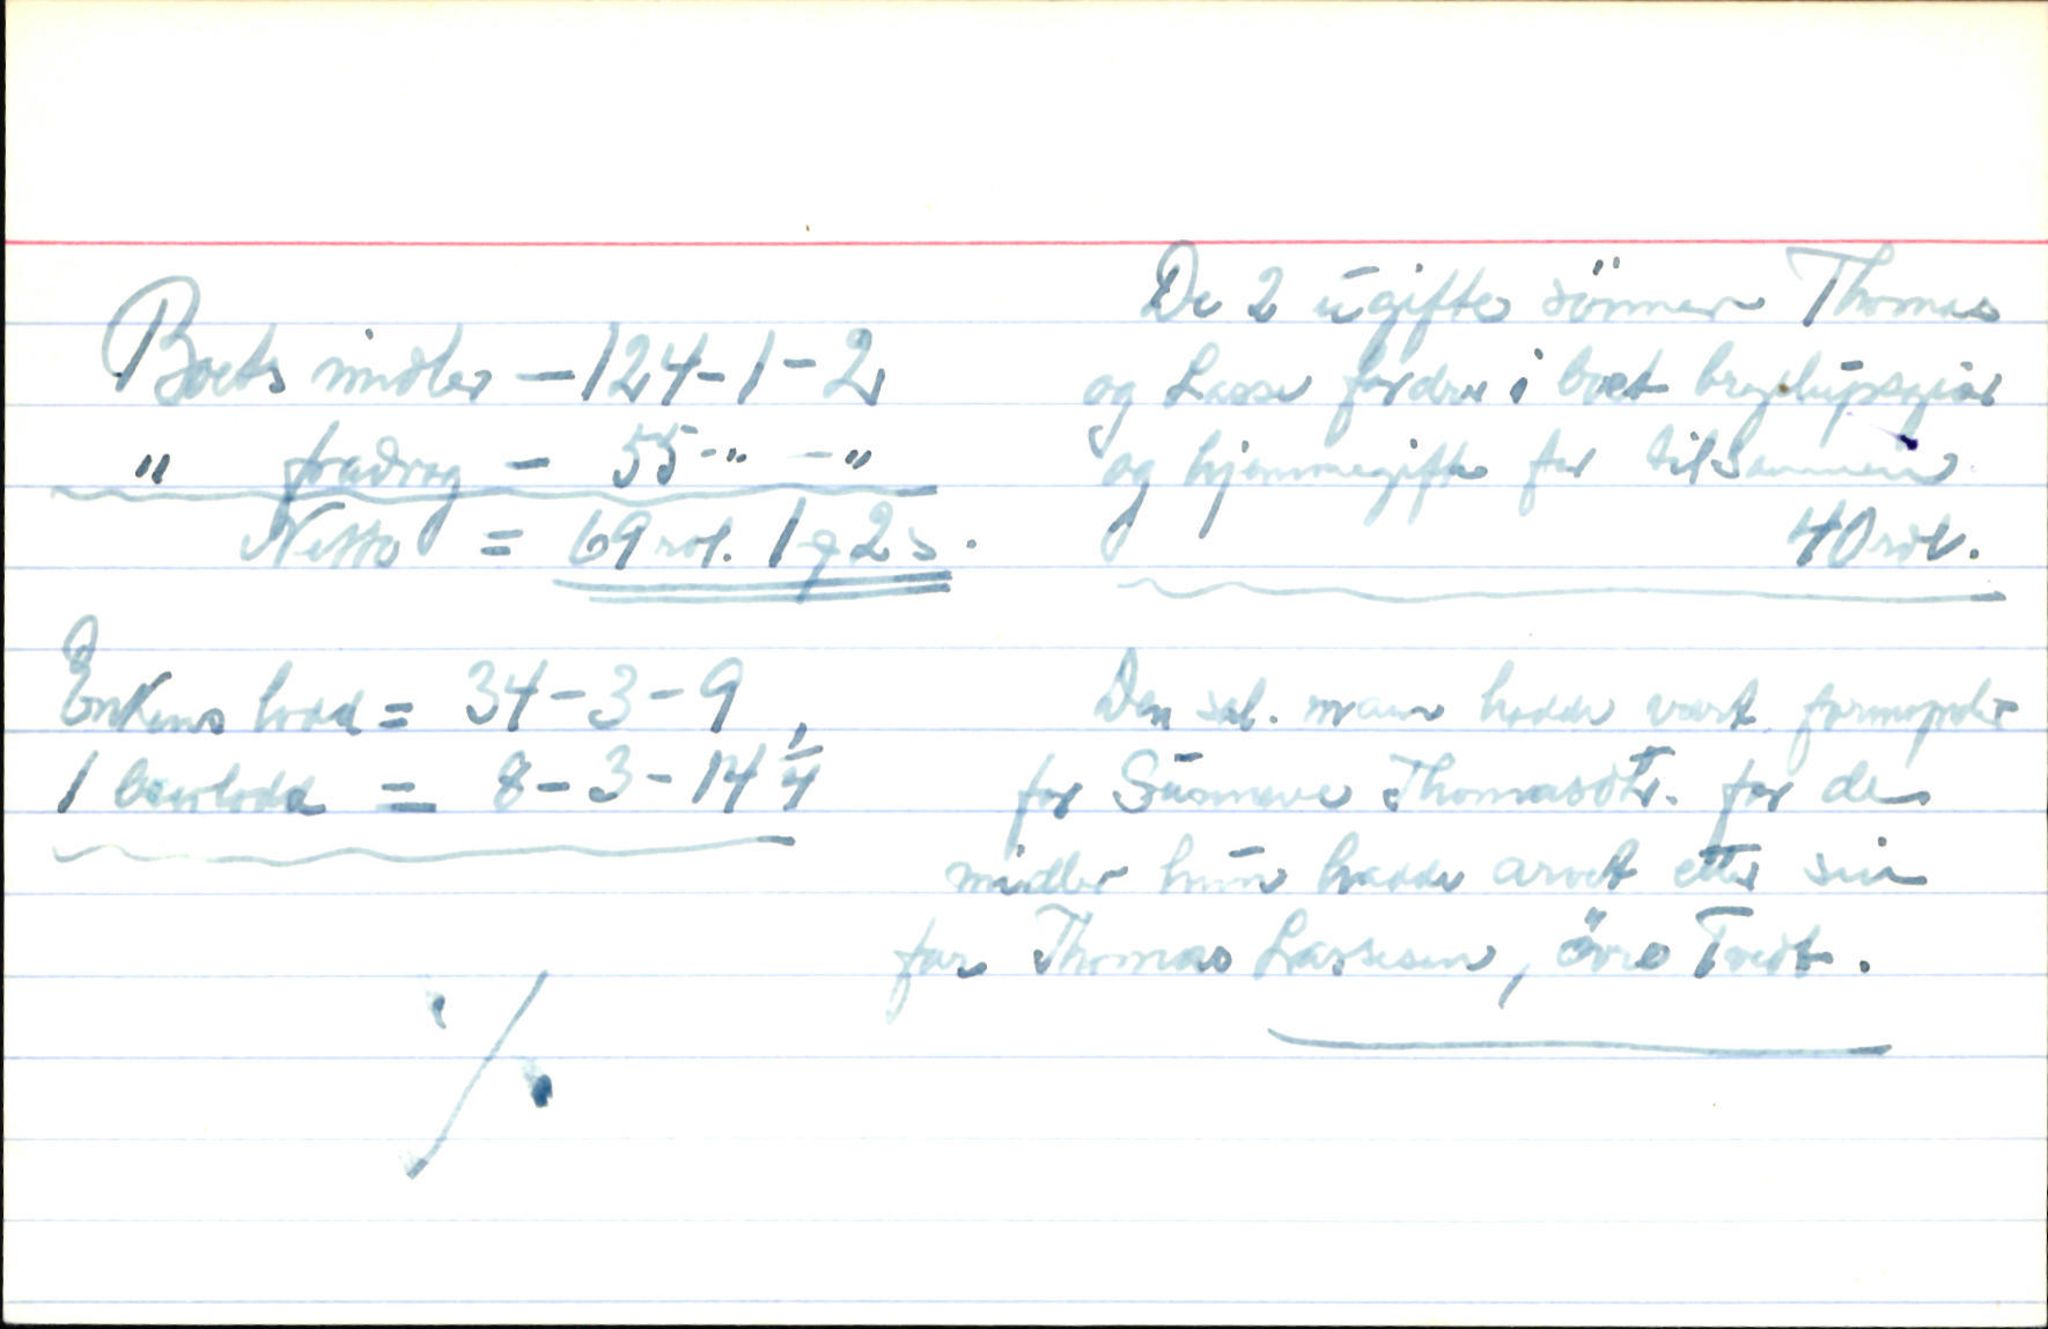 Boets midler - 124 - 1 - 2
" fradrag - 55 - " - "
Netto = 69 rdl. 1 q 2 s.
Enkens lodd = 34 - 3 - 9
1 = 8 - 3 - 14 1/4
De 2 ugifte sönner Thomas
og Lasse fordrer i boet
og hjemmegifte for tilsammen
40 rdl.
Den sal. mann hadde vært
for Sünneve Thomasdtr. for de
midler hun hadde arvet etter sin
far Thomas Lassesen, övre Tvedt.